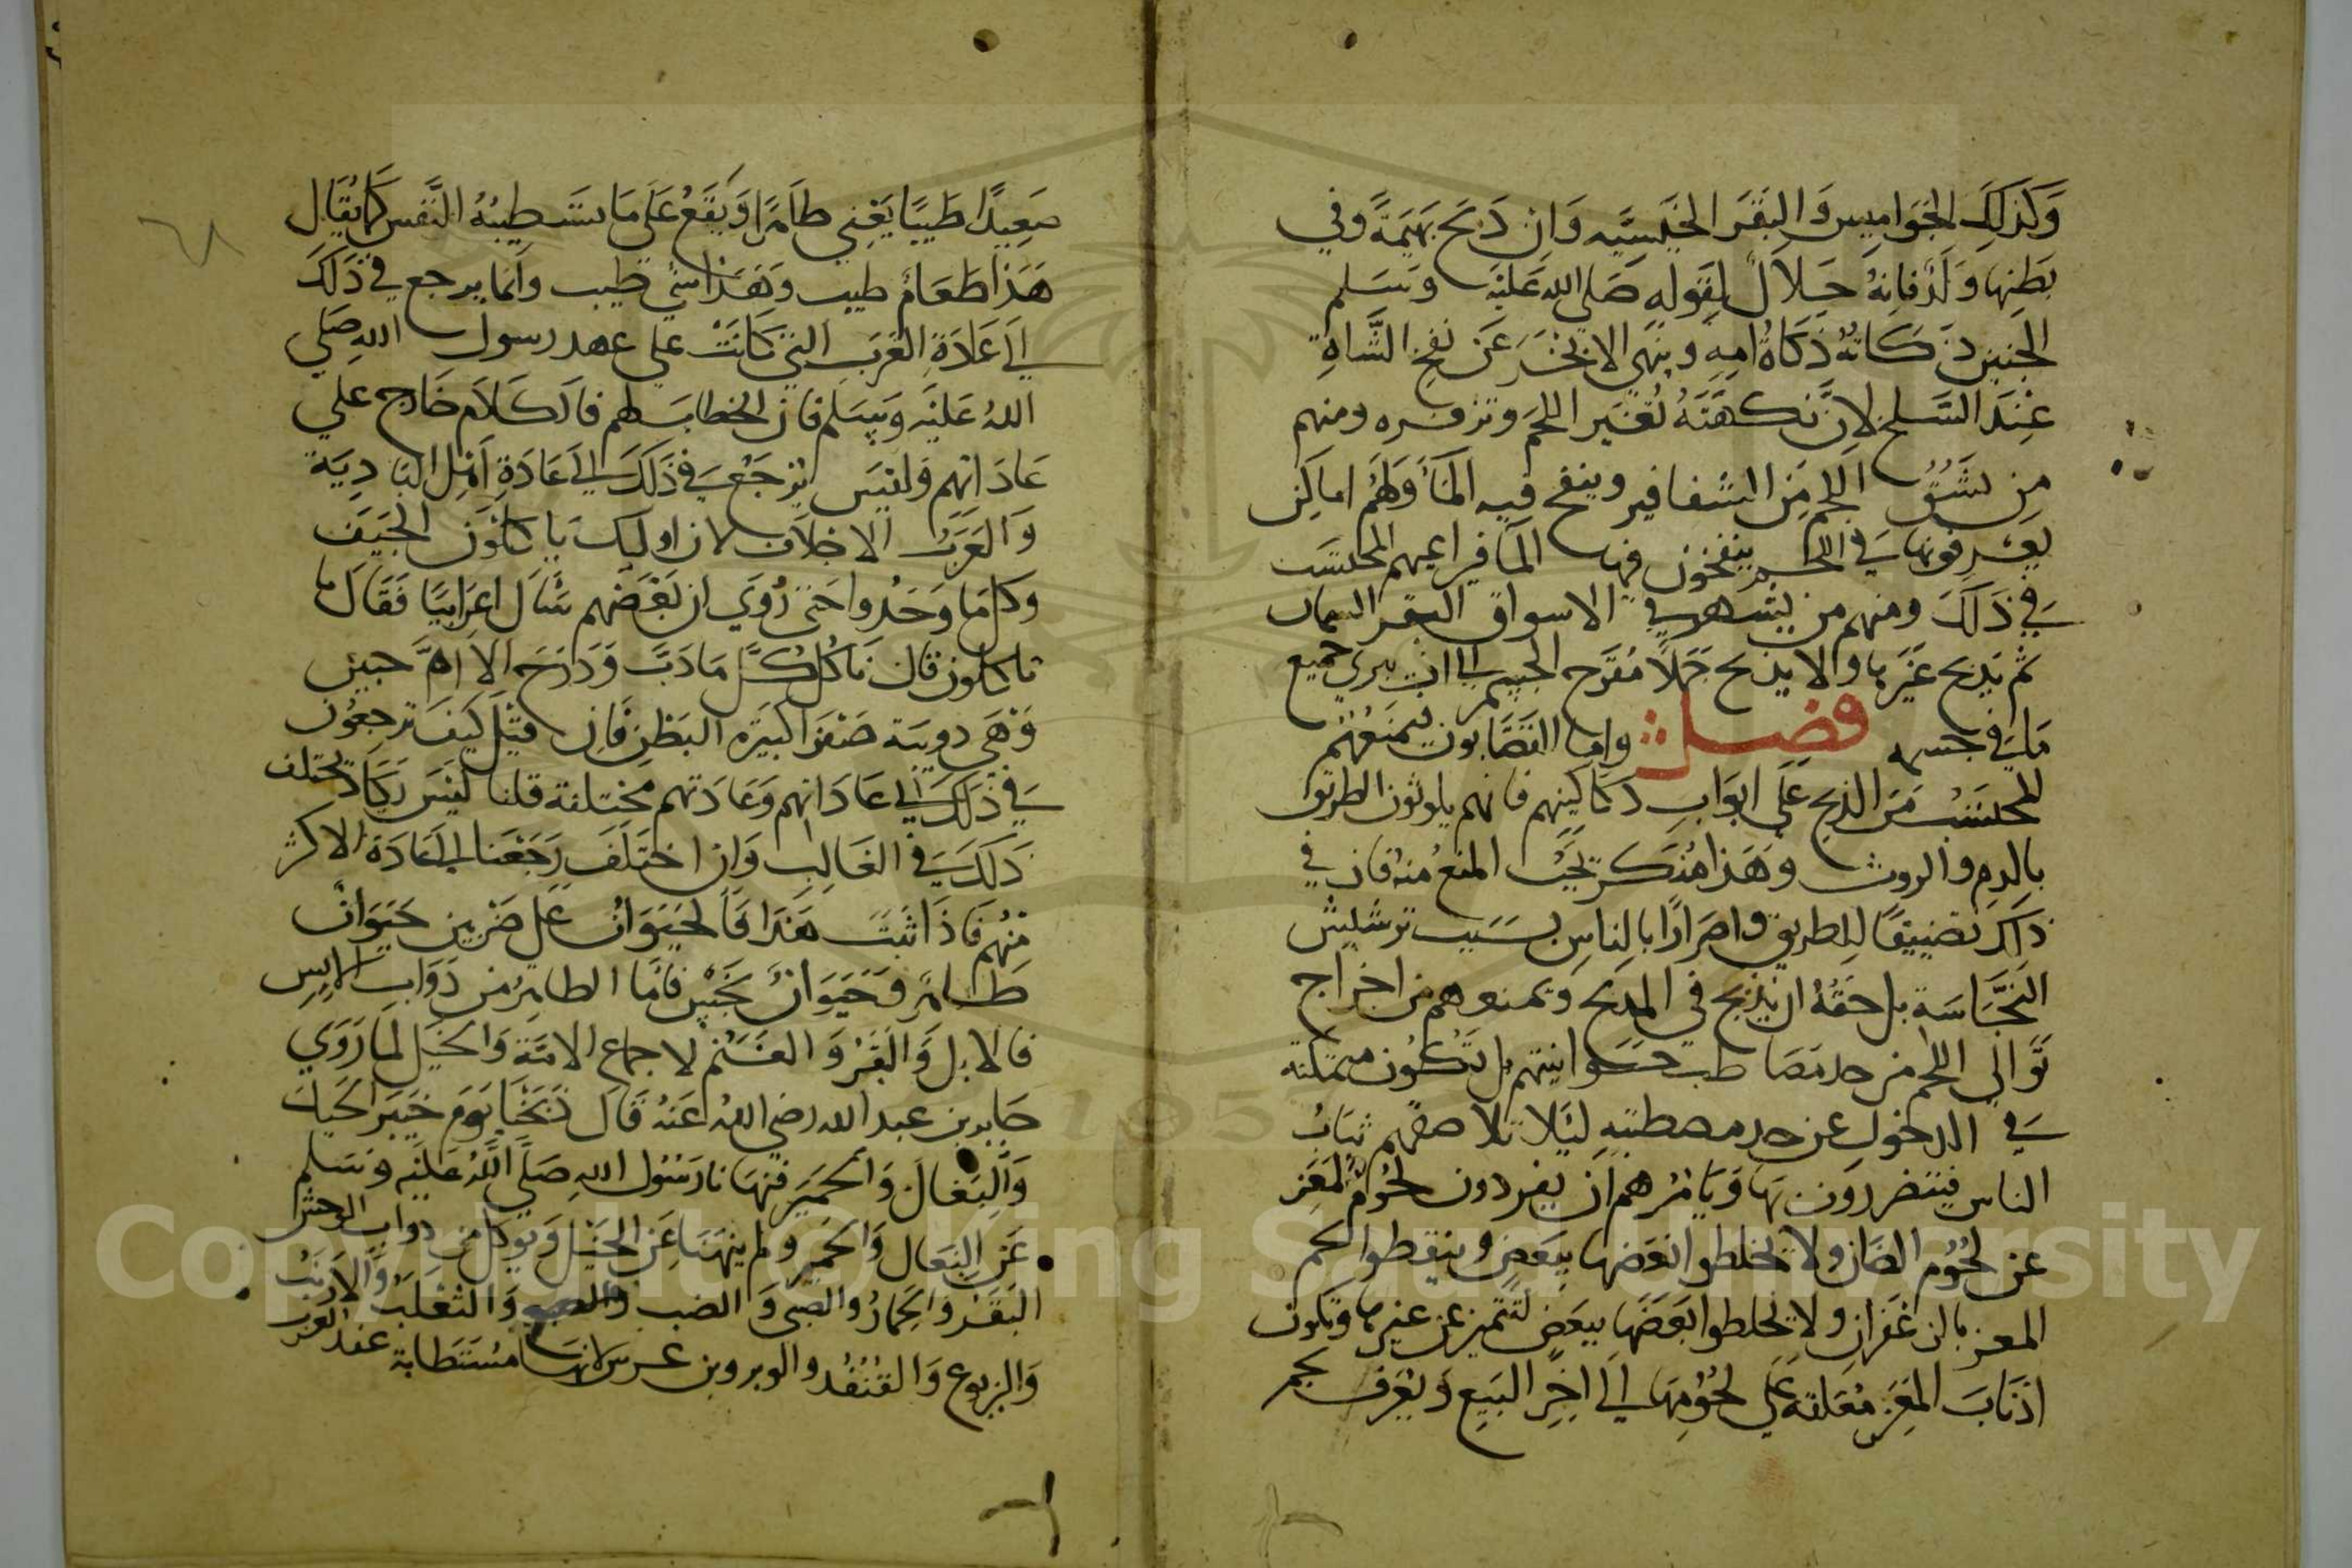 وَكَذَلِكَ الجَوَاميس وَالبَقَر الخَيسيَّه وَان ذَبَحَ بَهيمَةً وفي
بَطنِهَا وَلَدٌ فانهُ حَلاَلٌ لِقَولِهِ صَلى الله عَليْه وسَلم
الجنين ذَكاتهُ ذكَاةُ امهِ وينهي الابخَرَ عَن نفخ الشَّاةِ
عِندَ السَّلخ لانَّ نكهَتَهُ تُغَير اللحَم وتزفره ومنهم
مِن يشُقُّ اللحم مِنَ الشفافير وينفخ فيه المَاَ وَلهُم اماكِن
يعرفونها في اللحم ينفخون فيها الما فيراعيهم المحلتسب
في ذَلكَ ومنهم من يشهر في الاسواق البقر السمان
ثم يَذبح غَيرَها والا يذبح جَملاً مُقَرَّح الجسم الى ان يبرى جميع
مَا في جسمه فصل وامَا القصَّابون فيمنَعُهُم
المحتسب مِنَ الذبح عَلى ابوَابِ دكاكينهم فانهم يلوثون الطريق
بالدمِ والروث وهَذا مُنكر يجب المنع منهُ فان في
ذلكَ تضييقًا للطريق واضرَارًا بالناس بسَبب ترشيش
النَجَّاسَة بل حَقُهُ ان يذبح في المذبح وَيمنعوهم من اخراج
تَوالي اللحم من حد مصاطب حوانيتهم بل تَكُون متمكنه
في الدخول عن حد مصطبتهِ ليَلا تلاصقهم ثياب
الناس فيتضررون بهَا وَيَامُرهم ان يفردون لحُوم المَعَز
عن لحُوم الضان ولا يخلطوا بَعضها ببَعضٍ وينقطوا لحم
المعز بالزعفران ولا يخلطوا بَعَضَها ببَعَضٍ لتَتميز عن غيرها وتكون
اذنابَ المَعَز مُعَلقه عَلى لحُومها الى اخرِ البَيعِ وَيُعرَف لحم
صَعِيدًا طَيبًا يَعْني طاهرًا وَيَقَعُ عَلى مَا تستَطِيبُهُ النَّفس كَما يقَال
هَذا طَعَامٌ طيب وهَذا شي طيب وانما يرجع في ذَلكَ
الى عَادَةِ العَرَب التي كَانَتْ على عهد رسول الله صَلي
اللهُ عَليْه وَسَلم فان الخطاب لهم فالكلاَم خارج علي
عادَاتهم وَليْسَ يُرجَعُ في ذَلكَ الى عَادَةِ اهْل البَادِيَة
وَالعَرَب الاجلاف لان اوليك يَاكلوُن الجيَف
وكل مَا وَجَدُوا حَتى رُوي ان بَعْضهم سَال اعرَابيًا فقَالَ مَا
تاكلون قال نَاكُل كلَّ مَا دَبَّ وَدَرَجَ الا امَّ حبين
وَهْيَ دويبَة صَفرَا كبيَرة البَطن فَان قيْل كيف ترجعُون
في ذَلكَ الى عَادَاتهم وَعَادَتهم مختلفة قلنا ليْسَ يكَاد يختلف
ذَلَكَ في الغَالبِ وَان اختَلَفَ رَجَعْنا الى عَادَة الاكثر
مِنْهُم فَاذَا ثَبَتَ هَذا فَالحَيَوَانُ عَلى ضَرْبين حَيوَانٌ
طَاهر وَحَيَوَانٌ نجسٌ فامَّا الطاهِرُ من دَوابِ الانِس
فالابل وَالبقَرُ وَالغَنَم لاجماع الامَّة وَالخَيْل لمَا رَوَي
جَابر بن عبد الله رضي الله عَنهُ قَال ذَبَحْنَا يَوَمَ خَيبَر الخَيل
وَالبغَال وَالحَمير فنهَانا رَسُول اللهِ صَلَّى اللهُ عَليْه وسَلم
عَن البغَال وَالحَمير ولم ينهَنَا عَن الخَيْل وَيوكل من دوابِ الوَحش
البَقَر وَالحمَارُ والضبى وَالضب وَالثَعْلَبُ وَالارنَبُ
وَاليربوع وَالقنفُد والوبر وبن عرس لانهَا مسُتَطابَة عند العرب